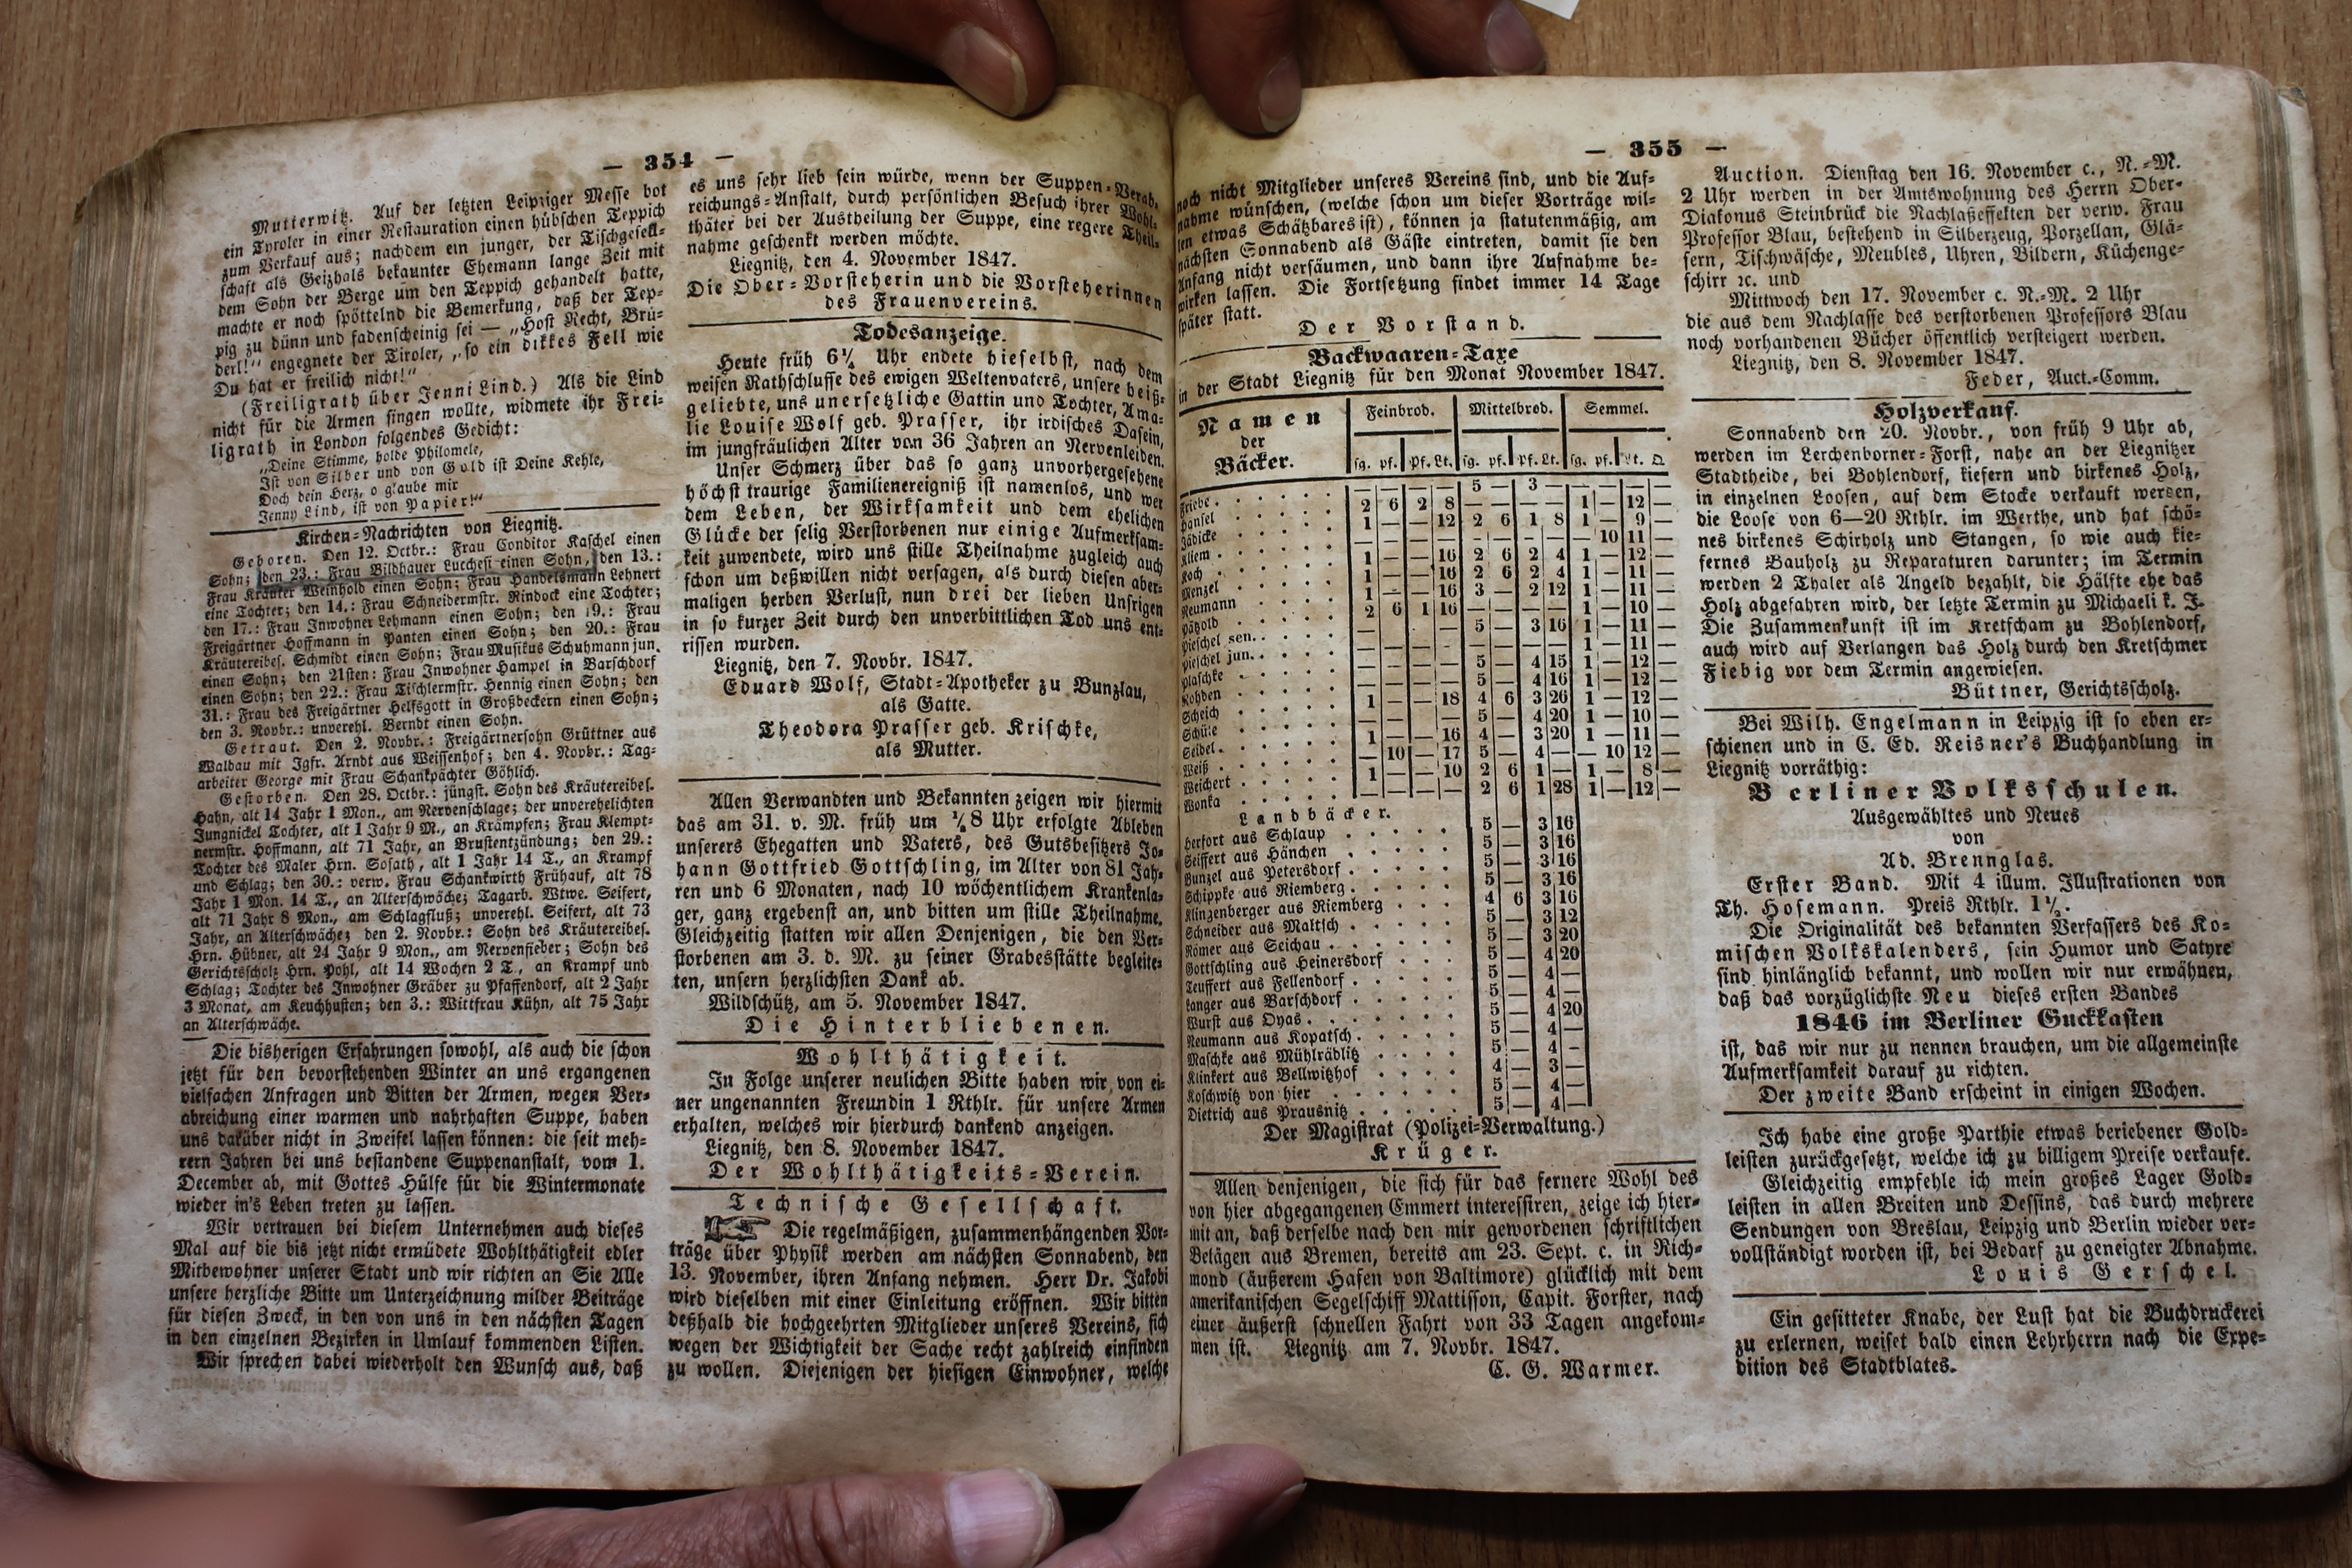 — 354 —
Mutterwitz. Auf der letzten Leipziger Messe bot
ein Tyroler in einer Restauration einen hübschen Teppich
zum Verkauf aus; nachdem ein junger, der Tischgesell-
schaft als Geizhals bekannter Ehemann lange Zeit mit
dem Sohn der Berge um den Teppich gehandelt hatte,
machte er noch spöttelnd die Bemerkung, daß der Tep-
pig zu dünn und fadenscheinig sei — „Host Recht, Brü-
derl!“ engegnete der Tiroler, „so ein dikkes Fell wie
Du hat er freilich nicht!“
(Freiligrath über Jenni Lind.) Als die Lind
nicht für die Armen singen wollte, widmete ihr Frei-
ligrath in London folgendes Gedicht:
„Deine Stimme, holde Philomele,
Ist von Silber und von Gold ist Deine Kehle,
Doch dein Herz, o glaube mir
Jenny Lind, ist von Papier!“
Kirchen-Nachrichten von Liegnitz.
Geboren. Den 12. Octbr.: Frau Conditor Kaschel einen
Sohn; den 23.: Frau Bildhauer Lucchesi einen Sohn, den 13.:
Frau Kräuter Weinhold einen Sohn; Frau Handelsmann Lehnert
eine Tochter; den 14.: Frau Schneidermstr. Rindock eine Tochter;
den 17.: Frau Inwohner Lehmann einen Sohn; den 19.: Frau
Freigärtner Hoffmann in Panten einen Sohn; den 20.: Frau
Kräutereibes. Schmidt einen Sohn; Frau Musikus Schuhmann jun.
einen Sohn; den 21sten: Frau Inwohner Hampel in Barschdorf
einen Sohn; den 22.: Frau Tischlermstr. Hennig einen Sohn; den
31.: Frau des Freigärtner Helfsgott in Großbeckern einen Sohn;
den 3. Novbr.: unverehl. Berndt einen Sohn.
Getraut. Den 2. Novbr.: Freigärtnersohn Grüttner aus
Waldau mit Igfr. Arndt aus Weissenhof; den 4. Novbr.: Tag-
arbeiter George mit Frau Schankpächter Göhlich.
Gestorben. Den 28. Octbr.: jüngst. Sohn des Kräutereibes.
Hahn, alt 14 Jahr 1 Mon., am Nervenschlage; der unverehelichten
Jungnickel Tochter, alt 1 Jahr 9 M., an Krämpfen; Frau Klempt-
nermstr. Hoffmann, alt 71 Jahr, an Brustentzündung; den 29.:
Tochter des Maler Hrn. Sosath, alt 1 Jahr 14 T., an Krampf
und Schlag; den 30.: verw. Frau Schankwirth Frühauf, alt 78
Jahr 1 Mon. 14 T., an Alterschwäche; Tagarb. Wtwe. Seifert,
alt 71 Jahr 8 Mon., am Schlagfluß; unverehl. Seifert, alt 73
Jahr, an Alterschwäche; den 2. Novbr.: Sohn des Kräutereibes.
Hrn. Hübner, alt 24 Jahr 9 Mon., am Nervenfieber; Sohn des
Gerichtsscholz Hrn. Pohl, alt 14 Wochen 2 T., an Krampf und
Schlag; Tochter des Inwohner Gräber zu Pfaffendorf, alt 2 Jahr
3 Monat, am Keuchhusten; den 3.: Wittfrau Kühn, alt 75 Jahr
an Alterschwäche.
Die bisherigen Erfahrungen sowohl, als auch die schon
jetzt für den bevorstehenden Winter an uns ergangenen
vielfachen Anfragen und Bitten der Armen, wegen Ver-
abreichung einer warmen und nahrhaften Suppe, haben
uns darüber nicht in Zweifel lassen können: die seit meh-
rern Jahren bei uns bestandene Suppenanstalt, vom 1.
December ab, mit Gottes Hülfe für die Wintermonate
wieder in's Leben treten zu lassen.
Wir vertrauen bei diesem Unternehmen auch dieses
Mal auf die bis jetzt nicht ermüdete Wohlthätigkeit edler
Mitbewohner unserer Stadt und wir richten an Sie Alle
unsere herzliche Bitte um Unterzeichnung milder Beiträge
für diesen Zweck, in den von uns in den nächsten Tagen
in den einzelnen Bezirken in Umlauf kommenden Listen.
Wir sprechen dabei wiederholt den Wunsch aus, daß
es uns sehr lieb sein würde, wenn der Suppen-Verab-
reichungs-Anstalt, durch persönlichen Besuch ihrer Wohl-
thäter bei der Austheilung der Suppe, eine regere Theil-
nahme geschenkt werden möchte.
Liegnitz, den 4. November 1847.
Die Ober-Vorsteherin und die Vorsteherinnen
des Frauenvereins.
Todesanzeige.
Heute früh 6¼ Uhr endete hieselbst, nach dem
weisen Rathschlusse des ewigen Weltenvaters, unsere heiß-
geliebte, uns unersetzliche Gattin und Tochter, Ama-
lie Louise Wolf geb. Prasser, ihr irdisches Dasein,
im jungfräulichen Alter von 36 Jahren an Nervenleiden.
Unser Schmerz über das so ganz unvorhergesehene
höchst traurige Familienereigniß ist namenlos, und wer
dem Leben, der Wirksamkeit und dem ehelichen
Glücke der selig Verstorbenen nur einige Aufmerksam-
keit zuwendete, wird uns stille Theilnahme zugleich auch
schon um deßwillen nicht versagen, als durch diesen aber-
maligen herben Verlust, nun drei der lieben Unsrigen
in so kurzer Zeit durch den unverbittlichen Tod uns ent-
rissen wurden.
Liegnitz, den 7. Novbr. 1847.
Eduard Wolf, Stadt-Apotheker zu Bunzlau,
als Gatte.
Theodora Prasser geb. Krischke,
als Mutter.
Allen Verwandten und Bekannten zeigen wir hiermit
das am 31. v. M. früh um ½8 Uhr erfolgte Ableben
unserers Ehegatten und Vaters, des Gutsbesitzers Jo-
hann Gottfried Gottschling, im Alter von 81 Jah-
ren und 6 Monaten, nach 10 wöchentlichem Krankenla-
ger, ganz ergebenst an, und bitten um stille Theilnahme.
Gleichzeitig statten wir allen Denjenigen, die den Ver-
storbenen am 3. d. M. zu seiner Grabesstätte begleite-
ten, unsern herzlichsten Dank ab.
Wildschütz, am 5. November 1847.
Die Hinterbliebenen.
Wohlthätigkeit.
In Folge unserer neulichen Bitte haben wir von ei-
ner ungenannten Freundin 1 Rthlr. für unsere Armen
erhalten, welches wir hierdurch dankend anzeigen.
Liegnitz, den 8. November 1847.
Der Wohlthätigkeits-Verein.
Technische Gesellschaft.
Die regelmäßigen, zusammenhängenden Vor-
träge über Physik werden am nächsten Sonnabend, den
13. November, ihren Anfang nehmen. Herr Dr. Jakobi
wird dieselben mit einer Einleitung eröffnen. Wir bitten
deßhalb die hochgeehrten Mitglieder unseres Vereins, sich
wegen der Wichtigkeit der Sache recht zahlreich einfinden
zu wollen. Diejenigen der hiesigen Einwohner, welche
— 355 —
noch nicht Mitglieder unseres Vereins sind, und die Auf-
nahme wünschen, (welche schon um dieser Vorträge wil-
len etwas Schätzbares ist), können ja statutenmäßig, am
nächsten Sonnabend als Gäste eintreten, damit sie den
Anfang nicht versäumen, und dann ihre Aufnahme be-
wirken lassen. Die Fortsetzung findet immer 14 Tage
später statt.
Der Vorstand.
Backwaaren-Taxe
in der Stadt Liegnitz für den Monat November 1847.
Namen der Bäcker. Feinbrod. Mittelbrod. Semmel.
sg. pf. Pf. Lt. sg. pf. Pf. Lt. sg. pf. Lt. Q.
Friebe . . . . . — — — — 5 — 3 — — — — —
Hänsel . . . . . 2 6 2 8 — — — — 1 — 12 —
Jädicke . . . . . 1 — — 12 2 6 1 8 1 — 9 —
Kliem . . . . . — — — — — — — — — 10 11 —
Koch . . . . . 1 — — 16 2 6 2 4 1 — 12 —
Menzel . . . . . 1 — — 16 2 6 2 4 1 — 11 —
Neumann . . . . . 1 — — 16 3 — 2 12 1 — 11 —
Pätzold . . . . . 2 6 1 16 — — — — 1 — 10 —
Pieschel sen. . . . . — — — — 5 — 3 16 1 — 11 —
Pieschel jun. . . . . — — — — — — — — 1 — 11 —
Plaschke . . . . . — — — — 5 — 4 15 1 — 12 —
Rohden . . . . . — — — — 5 — 4 16 1 — 12 —
Scheich . . . . . 1 — — 18 4 6 3 26 1 — 12 —
Schüle . . . . . — — — — 5 — 4 20 1 — 10 —
Seidel . . . . . 1 — — 16 4 — 3 20 1 — 11 —
Weiß . . . . . — 10 — 17 5 — 4 — — 10 12 —
Weichert . . . . . 1 — — 10 2 6 1 — 1 — 8 —
Wonka . . . . . — — — — 2 6 1 28 1 — 12 —
Landbäcker.
Herfort aus Schlaup . . . . . 5 — 3 16
Seiffert aus Hänchen . . . . . 5 — 3 16
Bunzel aus Petersdorf . . . . 5 — 3 16
Schippke aus Riemberg . . . . 5 — 3 16
Klinzenberger aus Riemberg . . . 4 6 3 16
Schneider aus Maltsch . . . . 5 — 3 12
Römer aus Seichau . . . . . 5 — 3 20
Gottschling aus Heinersdorf . . . 5 — 4 20
Teuffert aus Fellendorf . . . . 5 — 4 —
Langer aus Barschdorf . . . . 5 — 4 —
Wurst aus Oyas . . . . . . 5 — 4 20
Neumann aus Kopatsch . . . . 5 — 4 —
Maschke aus Mühlrädlitz . . . . 5 — 4 —
Klinkert aus Bellwitzhof . . . . 4 — 3 —
Koschwitz von hier . . . . . 5 — 4 —
Dietrich aus Prausnitz . . . . 5 — 4 —
Der Magistrat (Polizei-Verwaltung.)
Krüger.
Allen denjenigen, die sich für das fernere Wohl des
von hier abgegangenen Emmert interessiren, zeige ich hier-
mit an, daß derselbe nach den mir gewordenen schriftlichen
Belägen aus Bremen, bereits am 23. Sept. c. in Rich-
mond (äußerem Hafen von Baltimore) glücklich mit dem
amerikanischen Segelschiff Mattisson, Capit. Forster, nach
einer äußerst schnellen Fahrt von 33 Tagen angekom-
men ist. Liegnitz am 7. Novbr. 1847.
C. G. Warmer.
Auction. Dienstag den 16. November c., N.-M.
2 Uhr werden in der Amtswohnung des Herrn Ober-
Diakonus Steinbrück die Nachlaßeffekten der verw. Frau
Professor Blau, bestehend in Silberzeug, Porzellan, Glä-
sern, Tischwäsche, Meubles, Uhren, Bildern, Küchenge-
schirr ꝛc. und
Mittwoch den 17. November c. N.-M. 2 Uhr
die aus dem Nachlasse des verstorbenen Professors Blau
noch vorhandenen Bücher öffentlich versteigert werden.
Liegnitz, den 8. November 1847.
Feder, Auct.-Comm.
Holzverkauf.
Sonnabend den 20. Novbr., von früh 9 Uhr ab,
werden im Lerchenborner-Forst, nahe an der Liegnitzer
Stadtheide, bei Bohlendorf, kiefern und birkenes Holz,
in einzelnen Loosen, auf dem Stocke verkauft werden,
die Loose von 6—20 Rthlr. im Werthe, und hat schö-
nes birkenes Schirholz und Stangen, so wie auch kie-
fernes Bauholz zu Reparaturen darunter; im Termin
werden 2 Thaler als Angeld bezahlt, die Hälfte ehe das
Holz abgefahren wird, der letzte Termin zu Michaeli k. J.
Die Zusammenkunft ist im Kretscham zu Bohlendorf,
auch wird auf Verlangen das Holz durch den Kretschmer
Fiebig vor dem Termin angewiesen.
Büttner, Gerichtsscholz.
Bei Wilh. Engelmann in Leipzig ist so eben er-
schienen und in C. Ed. Reisner's Buchhandlung in
Liegnitz vorräthig:
Berliner Volksschulen.
Ausgewähltes und Neues
von
Ad. Brennglas.
Erster Band. Mit 4 illum. Illustrationen von
Th. Hosemann. Preis Rthlr. 1½.
Die Originalität des bekannten Verfassers des Ko-
mischen Volkskalenders, sein Humor und Satyre
sind hinlänglich bekannt, und wollen wir nur erwähnen,
daß das vorzüglichste Neu dieses ersten Bandes
1846 im Berliner Guckkasten
ist, das wir nur zu nennen brauchen, um die allgemeinste
Aufmerksamkeit darauf zu richten.
Der zweite Band erscheint in einigen Wochen.
Ich habe eine große Parthie etwas beriebener Gold-
leisten zurückgesetzt, welche ich zu billigem Preise verkaufe.
Gleichzeitig empfehle ich mein großes Lager Gold-
leisten in allen Breiten und Dessins, das durch mehrere
Sendungen von Breslau, Leipzig und Berlin wieder ver-
vollständigt worden ist, bei Bedarf zu geneigter Abnahme.
Louis Gerschel.
Ein gesitteter Knabe, der Lust hat die Buchdruckerei
zu erlernen, weiset bald einen Lehrherrn nach die Expe-
dition des Stadtblates.